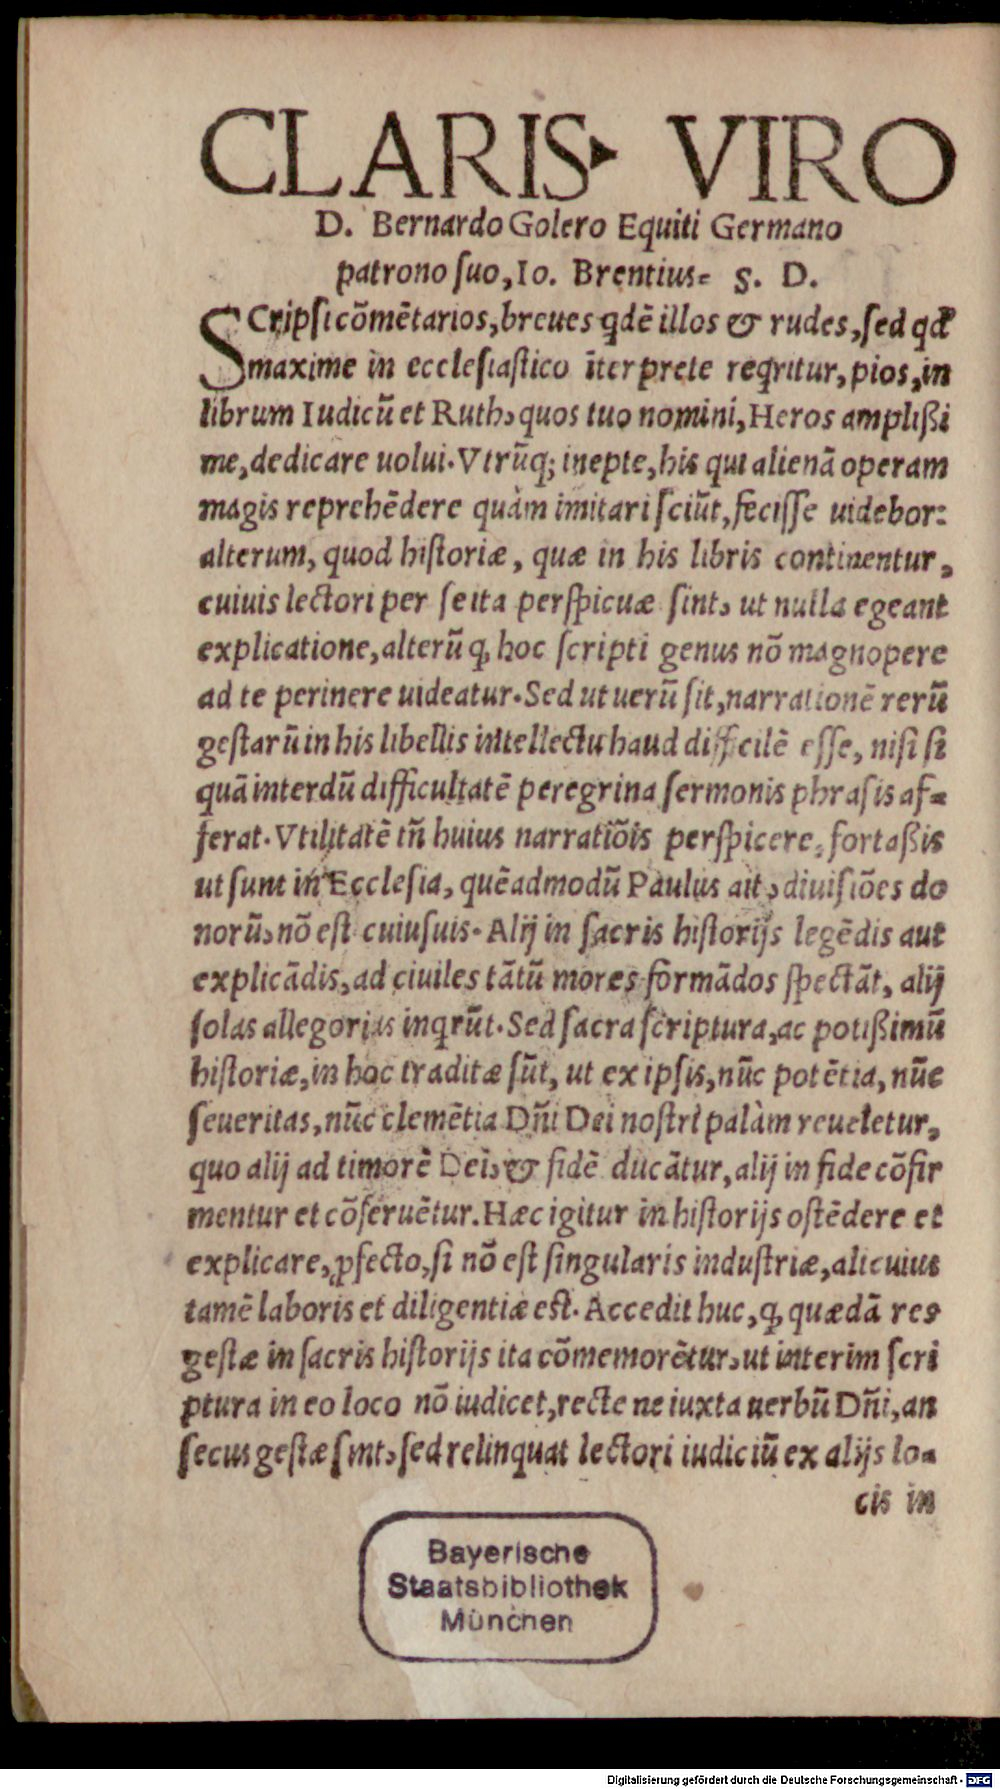 CLARIS. VIRO
D. Bernardo Golero Equiti Germano
patrono suo, Io. Brentius. S. D.
SCripsi cõmẽtarios, breues qdẽ illos & rudes, sed qd
maxime in ecclesiastico ĩterprete reqritur, pios, in
librum Iudicũ et Ruth, quos tuo nomini, Heros amplißi
me, dedicare uolui. Vtrũq; inepte, his qui alienã operam
magis reprehẽdere quàm imitari sciũt, fecisse uidebor:
alterum, quod historiæ, quæ in his libris continentur,
cuiuis lectori per se ita perspicuæ sint, ut nulla egeant
explicatione, alterũ q, hoc scripti genus nõ magnopere
ad te perinere uideatur. Sed ut uerũ sit, narrationẽ rerũ
gestarũ in his libellis intellectu haud difficilẽ esse, nisi si
quã interdũ difficultatẽ peregrina sermonis phrasis af-
ferat. Vtilitatẽ tñ huius narratiõis perspicere, fortaßis
ut sunt in Ecclesia, quẽadmodũ Paulus ait, diuisiões do
norũ, nõ est cuiusuis. Alij in sacris historijs legẽdis aut
explicãdis, ad ciuiles tãtũ mores formãdos spectãt, alij
solas allegorias inqrũt. Sed sacra scriptura, ac potißimũ
historiæ, in hoc traditæ sũt, ut ex ipsis, nũc potẽtia, nũc
seueritas, nũc clemẽtia Dñi Dei nostri palàm reueletur,
quo alij ad timorẽ Dei, & fidẽ ducãtur, alij in fide cõfir
mentur et cõseruẽtur. Hæc igitur in historijs ostẽdere et
explicare, ꝓfecto, si nõ est singularis industriæ, alicuius
tamẽ laboris et diligentiæ est. Accedit huc, q, quædã res
gestæ in sacris historijs ita cõmemorẽtur, ut interim scri
ptura in eo loco nõ iudicet, recte ne iuxta uerbũ Dñi, an
secus gestæ sint, sed relinquat lectori iudiciũ ex alijs lo-
cis in
Bayerische
Staatsbibliothek
München
Digitalisierung gefördert durch die Deutsche Forschungsgemeinschaft - DFG